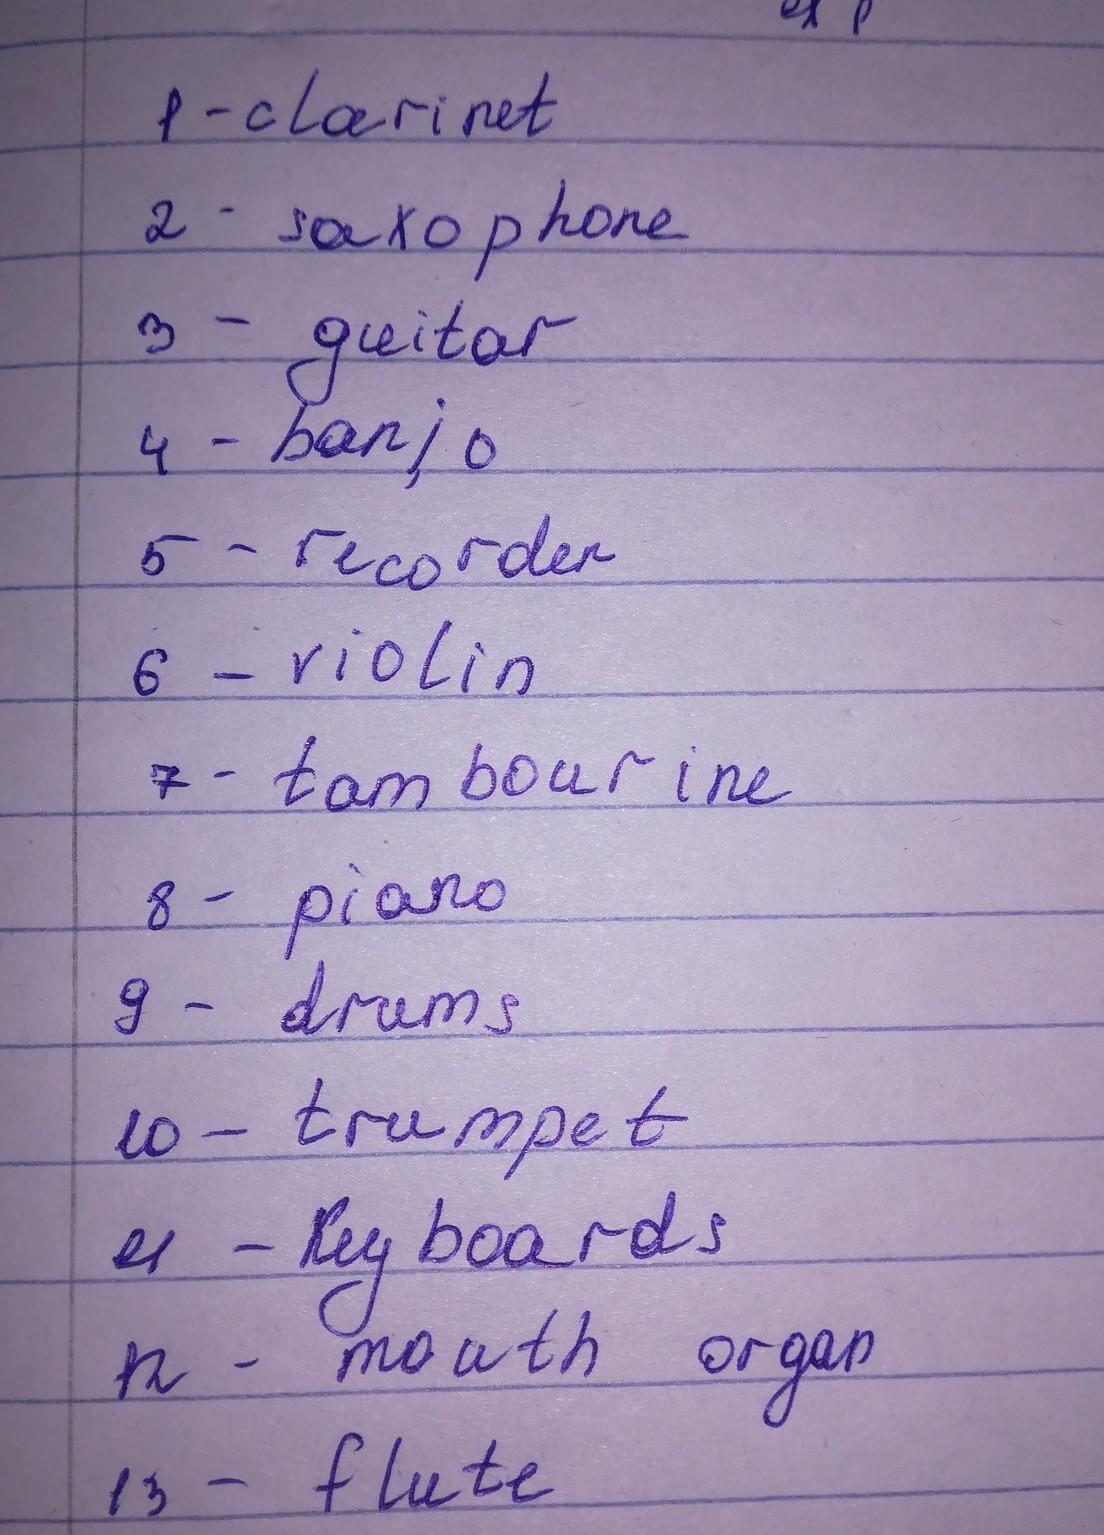 1 - clarinet
2 - saxophone
3 - guitar
4 - banjo
5 - recorder
6 - violin
7 - tambourine
8 - piano
9 - drums
10 - trumpet
11 - Keyboards
12 - mouth organ
13 - flute